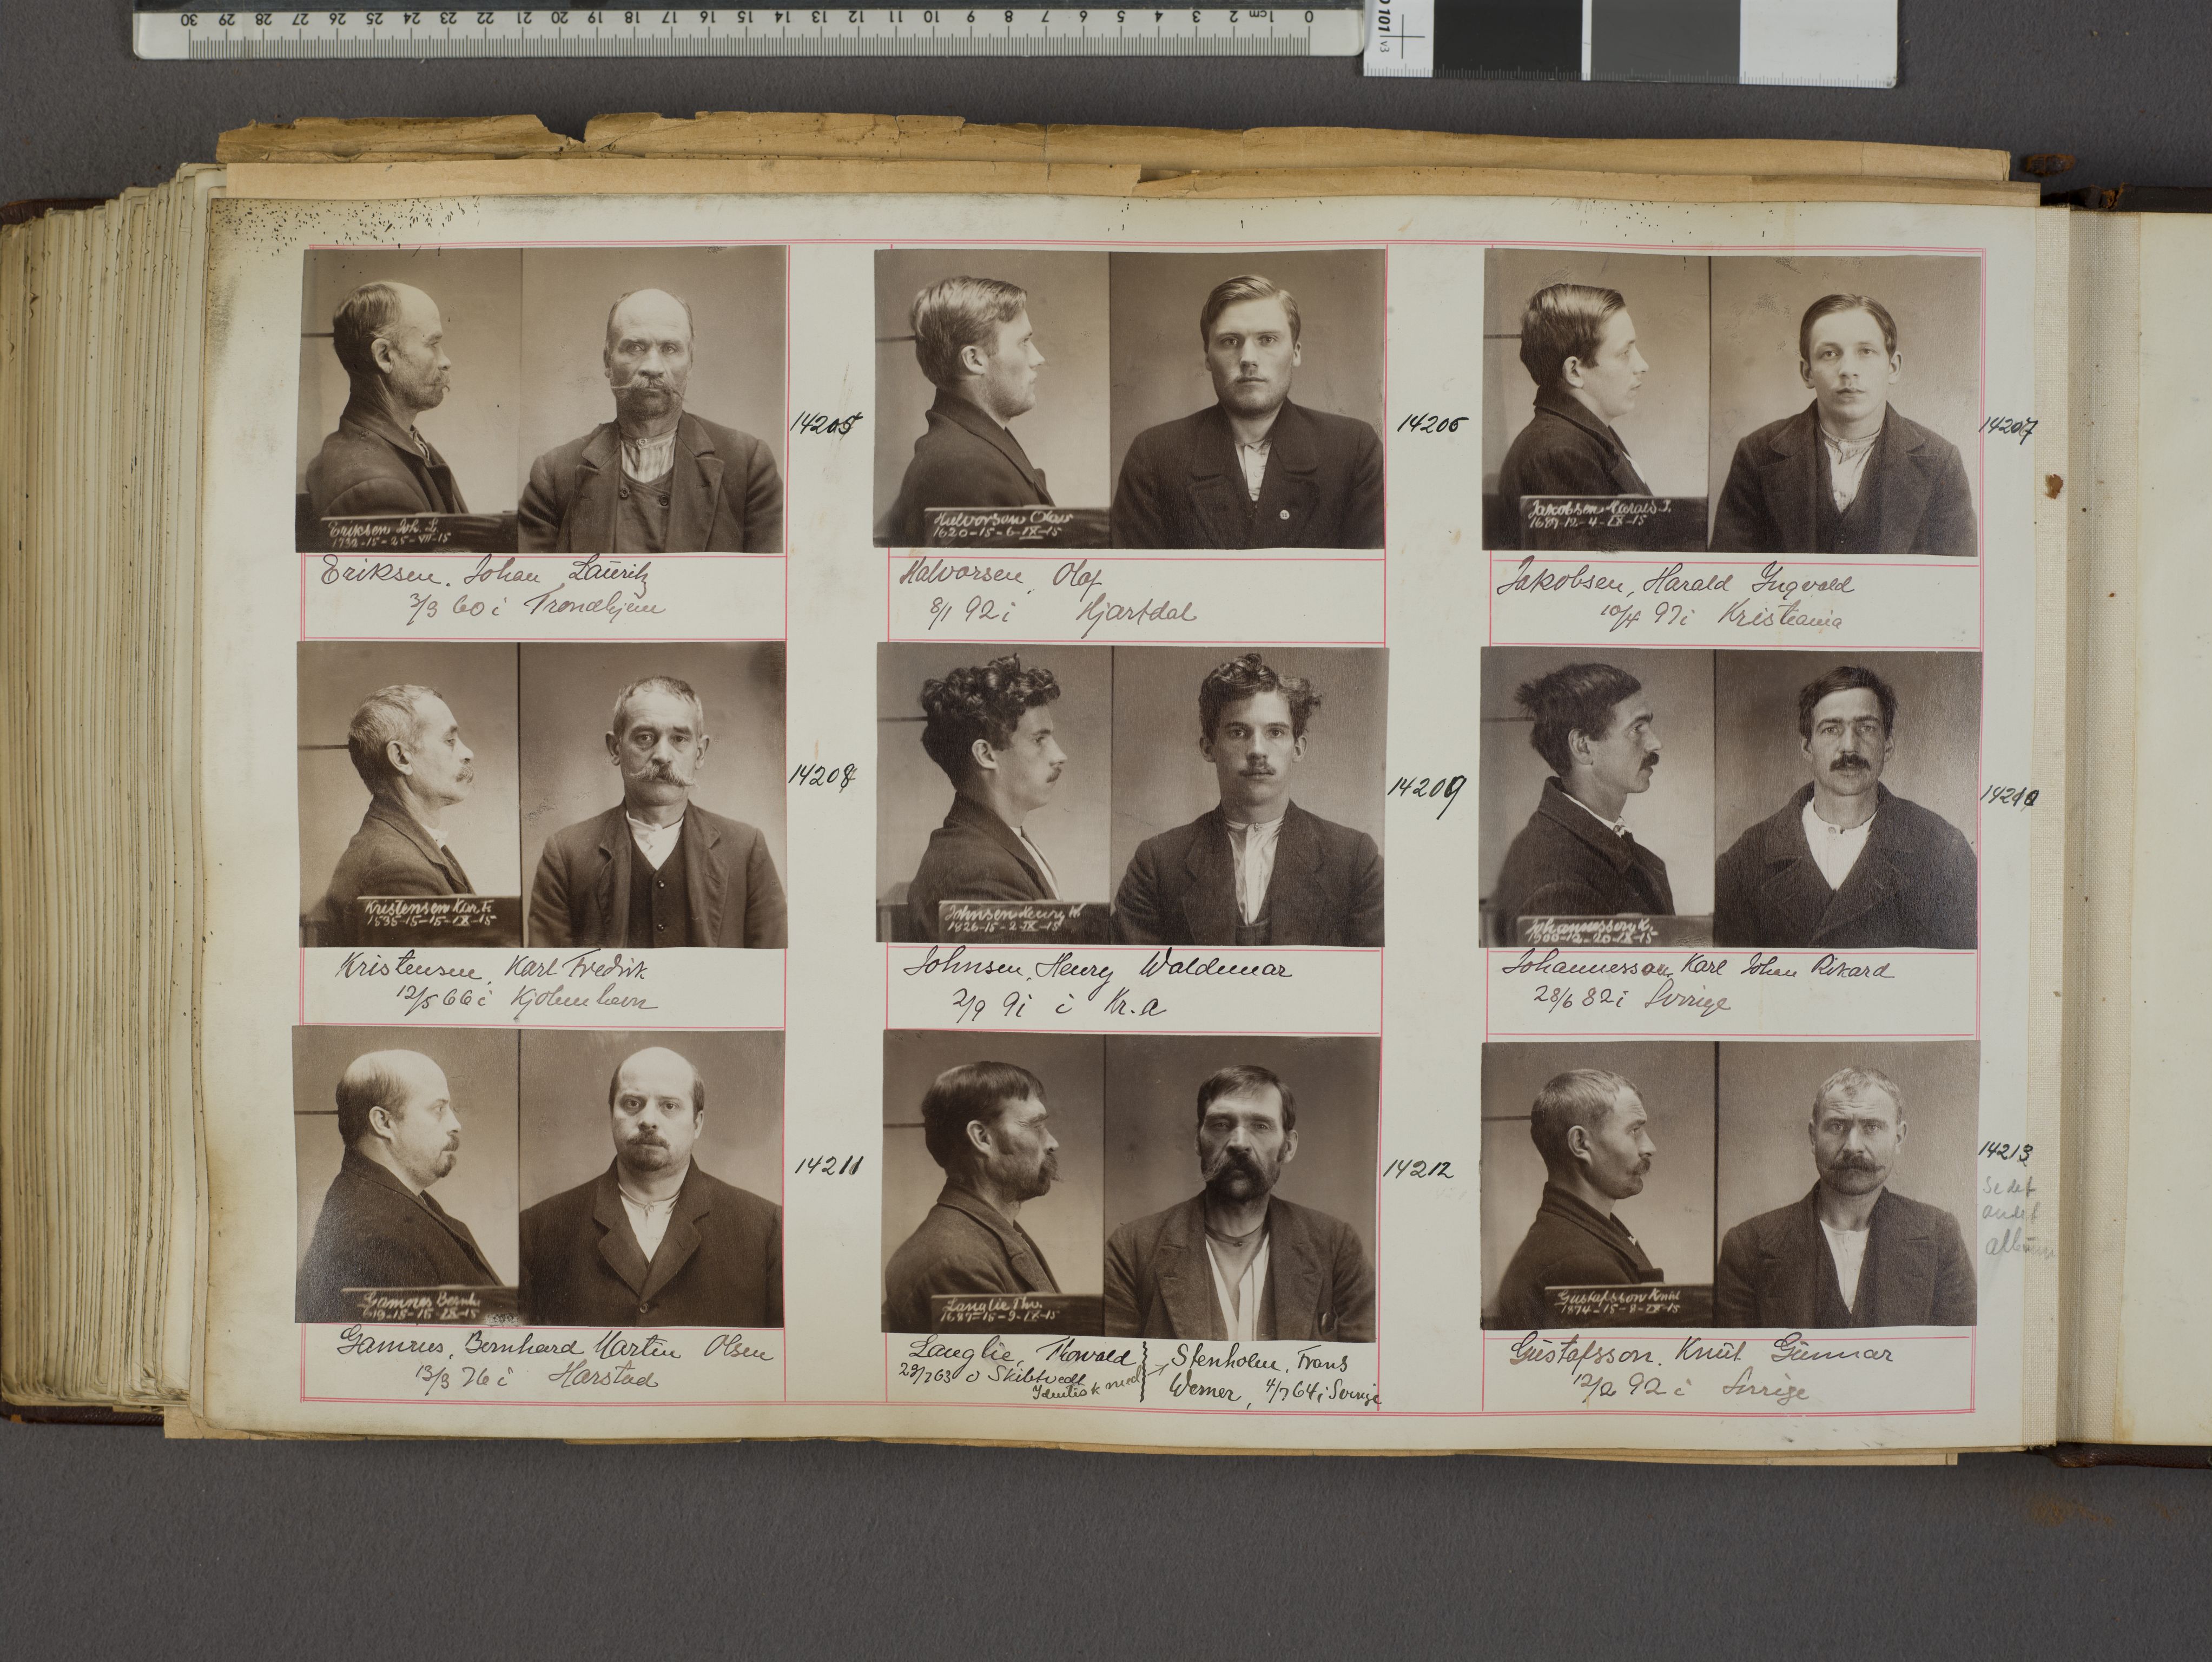 30 29 28 27 26 25 24 23 22 21 20 19 18 17 16 15 14 13 12 11 10 9 8 7 6 5 4 3 2 1cm 0
v3
Eriksen Joh. L.
14205
Eriksen. Johan Lauritz
3/3 60 i Trondhjem
Halvorsen Olav
1620-15-6-IX-15
14206
Halvorsen, Olaf
8/1 92 i Hjartdal
Jakobsen Harald I.
14207
Jakobsen, Harald Ingvald
10/4 97 i Kristiania
Kristensen Karl Fr.
1535-15-15-IX-15
14208
Kristensen, Karl Fredrik
12/5 66 i Kjøbenhavn
Johnsen Henry W.
1426-15-2-IX-15
14209
Johnsen, Henry Waldemar
2/9 91 i Kr.a
Johannesson K.
1900-12-20-IX-15
14210
Johannesson, Karl Johan Rikard
28/6 82 i Sverige
Gamnes Bernh.
14211
Gamnes, Bernhard Martin Olsen
13/3 76 i Harstad
Langlie Thv.
1687-15-9-IX-15
14212
Langlie, Thorvald
29/7 63 i Skibtvedt
Identisk med
Stenholm, Frans
Werner, 4/7 64 i Sverige
Gustafsson Knut
1874-15-8-IX-15
14213
Se det
andet
album
Gustafsson. Knut Gunnar
12/2 92 i Sverige